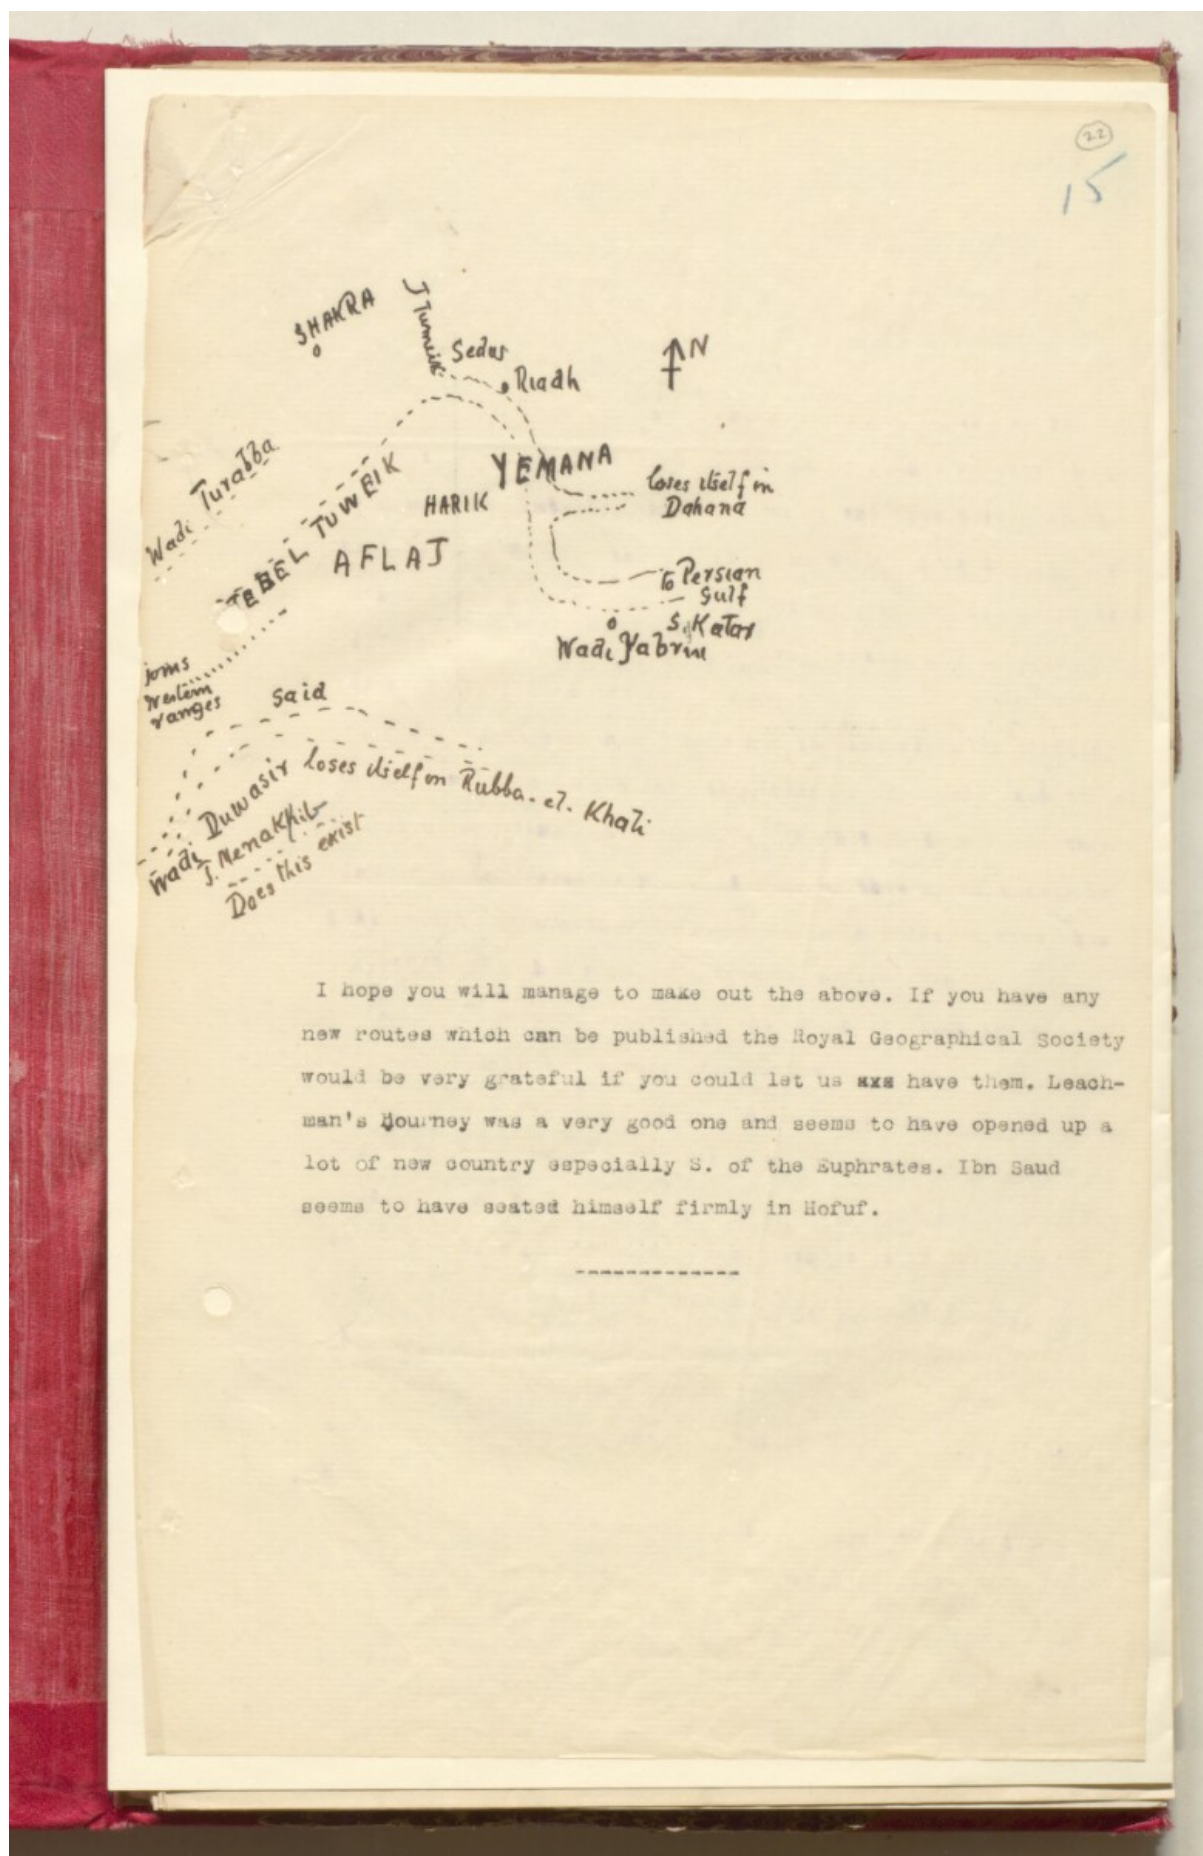 22
15
SHAKRA
J Tumeik
Sedus
Riadh
N
Wadi Turabba
JEBEL TUWEIK
YEMANA
HARIK
AFLAJ
loses itself in
Dahana
To Persian
Gulf
S. Katar
Wadi Yabrin
joins
western
ranges
Said
Wadi Duwasir loses itself in Rubba-el-Khali
J. Menakhib
Does this exist
I hope you will manage to make out the above. If you have any
new routes which can be published the Royal Geographical Society
would be very grateful if you could let us xxx have them. Leach-
man's Journey was a very good one and seems to have opened up a
lot of new country especially S. of the Euphrates. Ibn Saud
seems to have seated himself firmly in Hofuf.
-------------